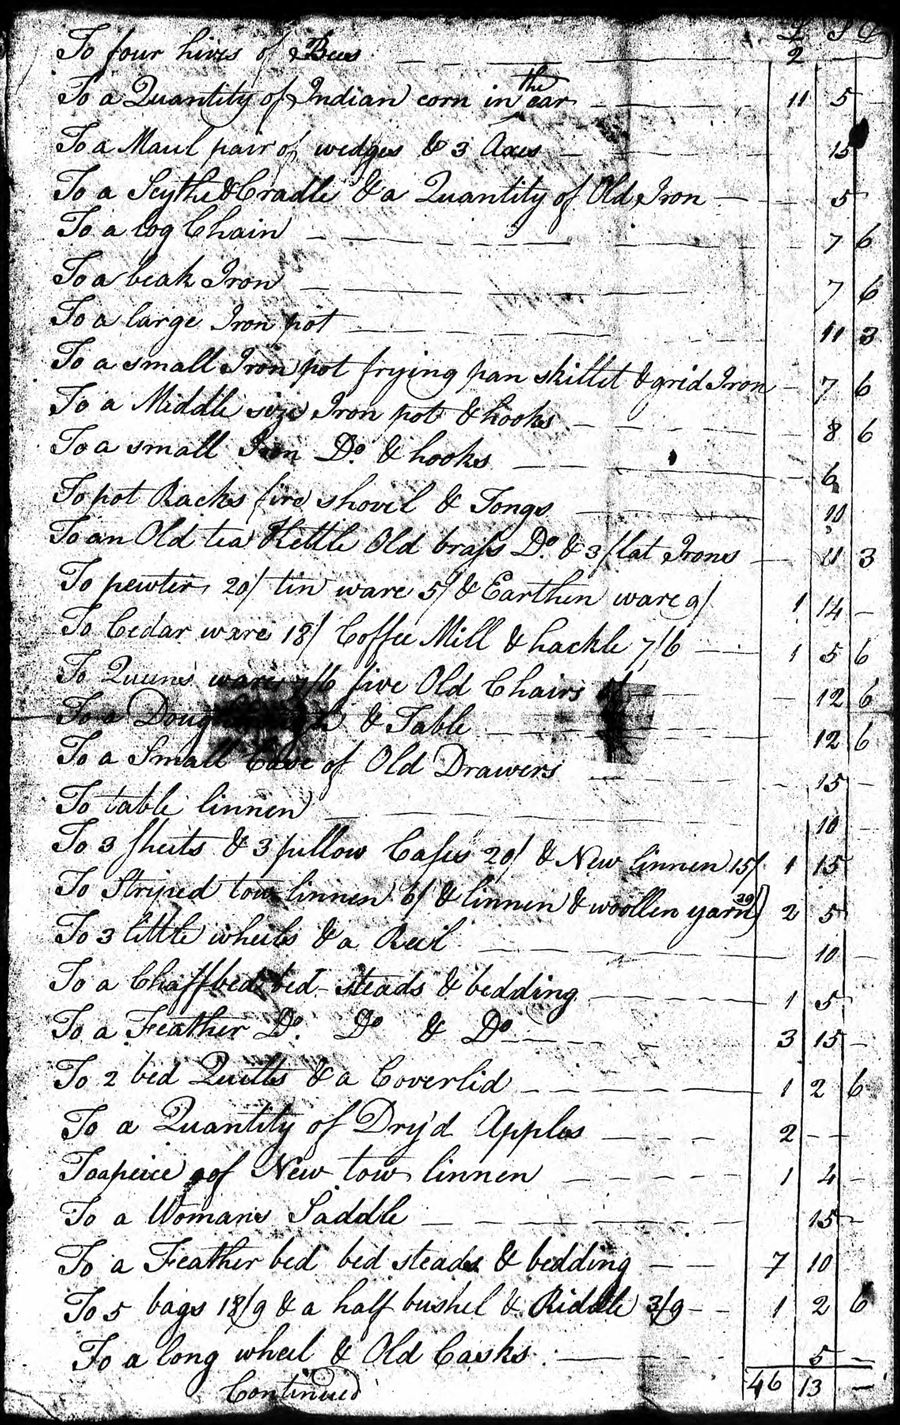 £ S D
To four hives of Bees — — — 2
To a Quantity of Indian corn in the ear — 11 5 —
To a Maul pair of wedges & 3 Axes — 15
To a Scythe & Cradle & a Quantity of Old Iron — 5
To a log Chain — — — 7 6
To a beak Iron — — — 7 6
To a large Iron pot — — — 11 3
To a small Iron pot frying pan skillit & grid Iron — 7 6
To a Middle size Iron pot & hooks — — 8 6
To a small Iron Do. & hooks — — 6
To pot Racks fire shovel & Tongs — — 10
To an Old tea Kettle Old brass Do. & 3 flat Irons — 11 3
To pewter 20/ tin ware 5/ & Earthen ware 9/ 1 14 —
To Cedar ware 18/ Coffee Mill & hackle 7/6 — 1 5 6
To Queens ware 7/6 five Old Chairs — 12 6
To a & Table — — — 12 6
To a Small Case of Old Drawers — — 15 —
To table linnen — — — 10
To 3 sheets & 3 pillow Cases 20/ & New linnen 15/ 1 15
To Striped tow linnen 6/ & linnen & woollen yarn 39/ 2 5
To 3 little wheels & a Reel — — 10
To a Chaff bed bed-steads & bedding — — 1 5 —
To a Feather Do. Do & Do — — 3 15 —
To 2 bed Quilts & a Coverlid — — 1 2 6
To a Quantity of Dry'd Apples — — 2 — —
To a peice of New tow linnen — — 1 4 —
To a Womans Saddle — — — 15 —
To a Feather bed bed steads & bedding — — 7 10
To 5 bags 18/9 & a half bushel & Riddle 3/9 — 1 2 6
To a long wheel & Old Casks — — 5 —
Continued 46 13 —